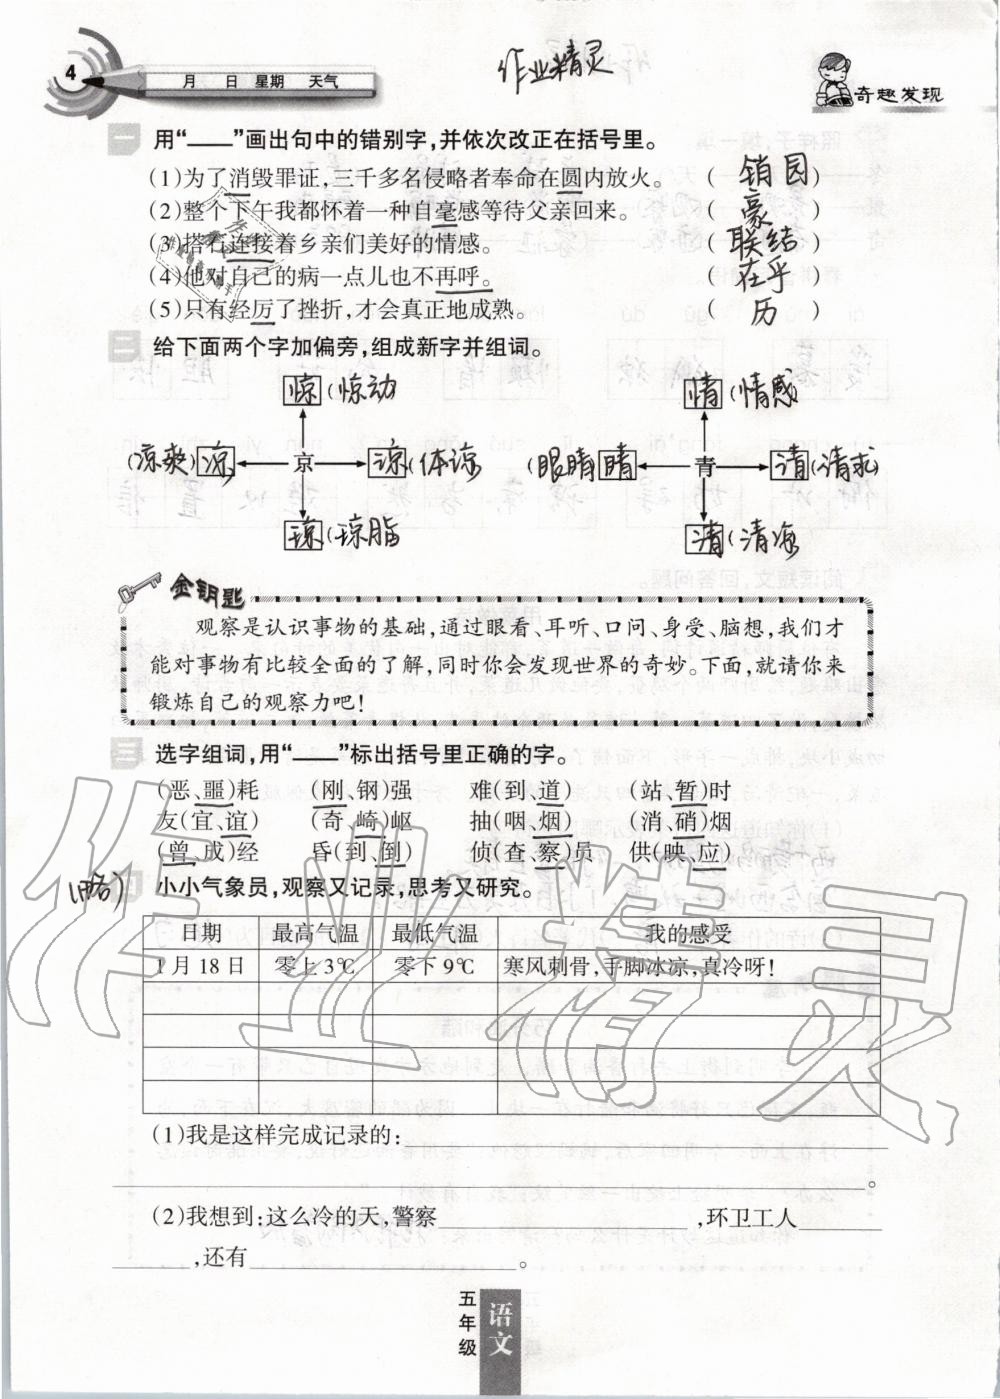 4
月 日 星期 天气
作业精灵
奇趣发现
一 用“——”画出句中的错别字,并依次改正在括号里。
(1)为了消毁罪证,三千多名侵略者奉命在圆内放火。 ( 销 园 )
(2)整个下午我都怀着一种自毫感等待父亲回来。 ( 豪 )
(3)搭石连接着乡亲们美好的情感。 ( 联结 )
(4)他对自己的病一点儿也不再呼。 ( 在乎 )
(5)只有经厉了挫折,才会真正地成熟。 ( 历 )
二 给下面两个字加偏旁,组成新字并组词。
惊(惊动 情(情感
(凉爽)凉 京 谅(体谅 (眼睛 睛 青 请(请求)
琼(琼脂 清(清海
金钥匙
观察是认识事物的基础,通过眼看、耳听、口问、身受、脑想,我们才
能对事物有比较全面的了解,同时你会发现世界的奇妙。下面,就请你来
锻炼自己的观察力吧!
三 选字组词,用“——”标出括号里正确的字。
(恶、噩)耗 (刚、钢)强 难(到、道) (站、暂)时
友(宜、谊) (奇、崎)岖 抽(咽、烟) (消、硝)烟
(曾、成)经 昏(到、倒) 侦(查、察)员 供(映、应)
(略) 四 小小气象员,观察又记录,思考又研究。
日期 最高气温 最低气温 我的感受
1月18日 零上3℃ 零下9℃ 寒风刺骨,手脚冰凉,真冷呀!
(1)我是这样完成记录的:
。
(2)我想到:这么冷的天,警察 ,环卫工人
,还有 。
五年级
语文
作业精灵